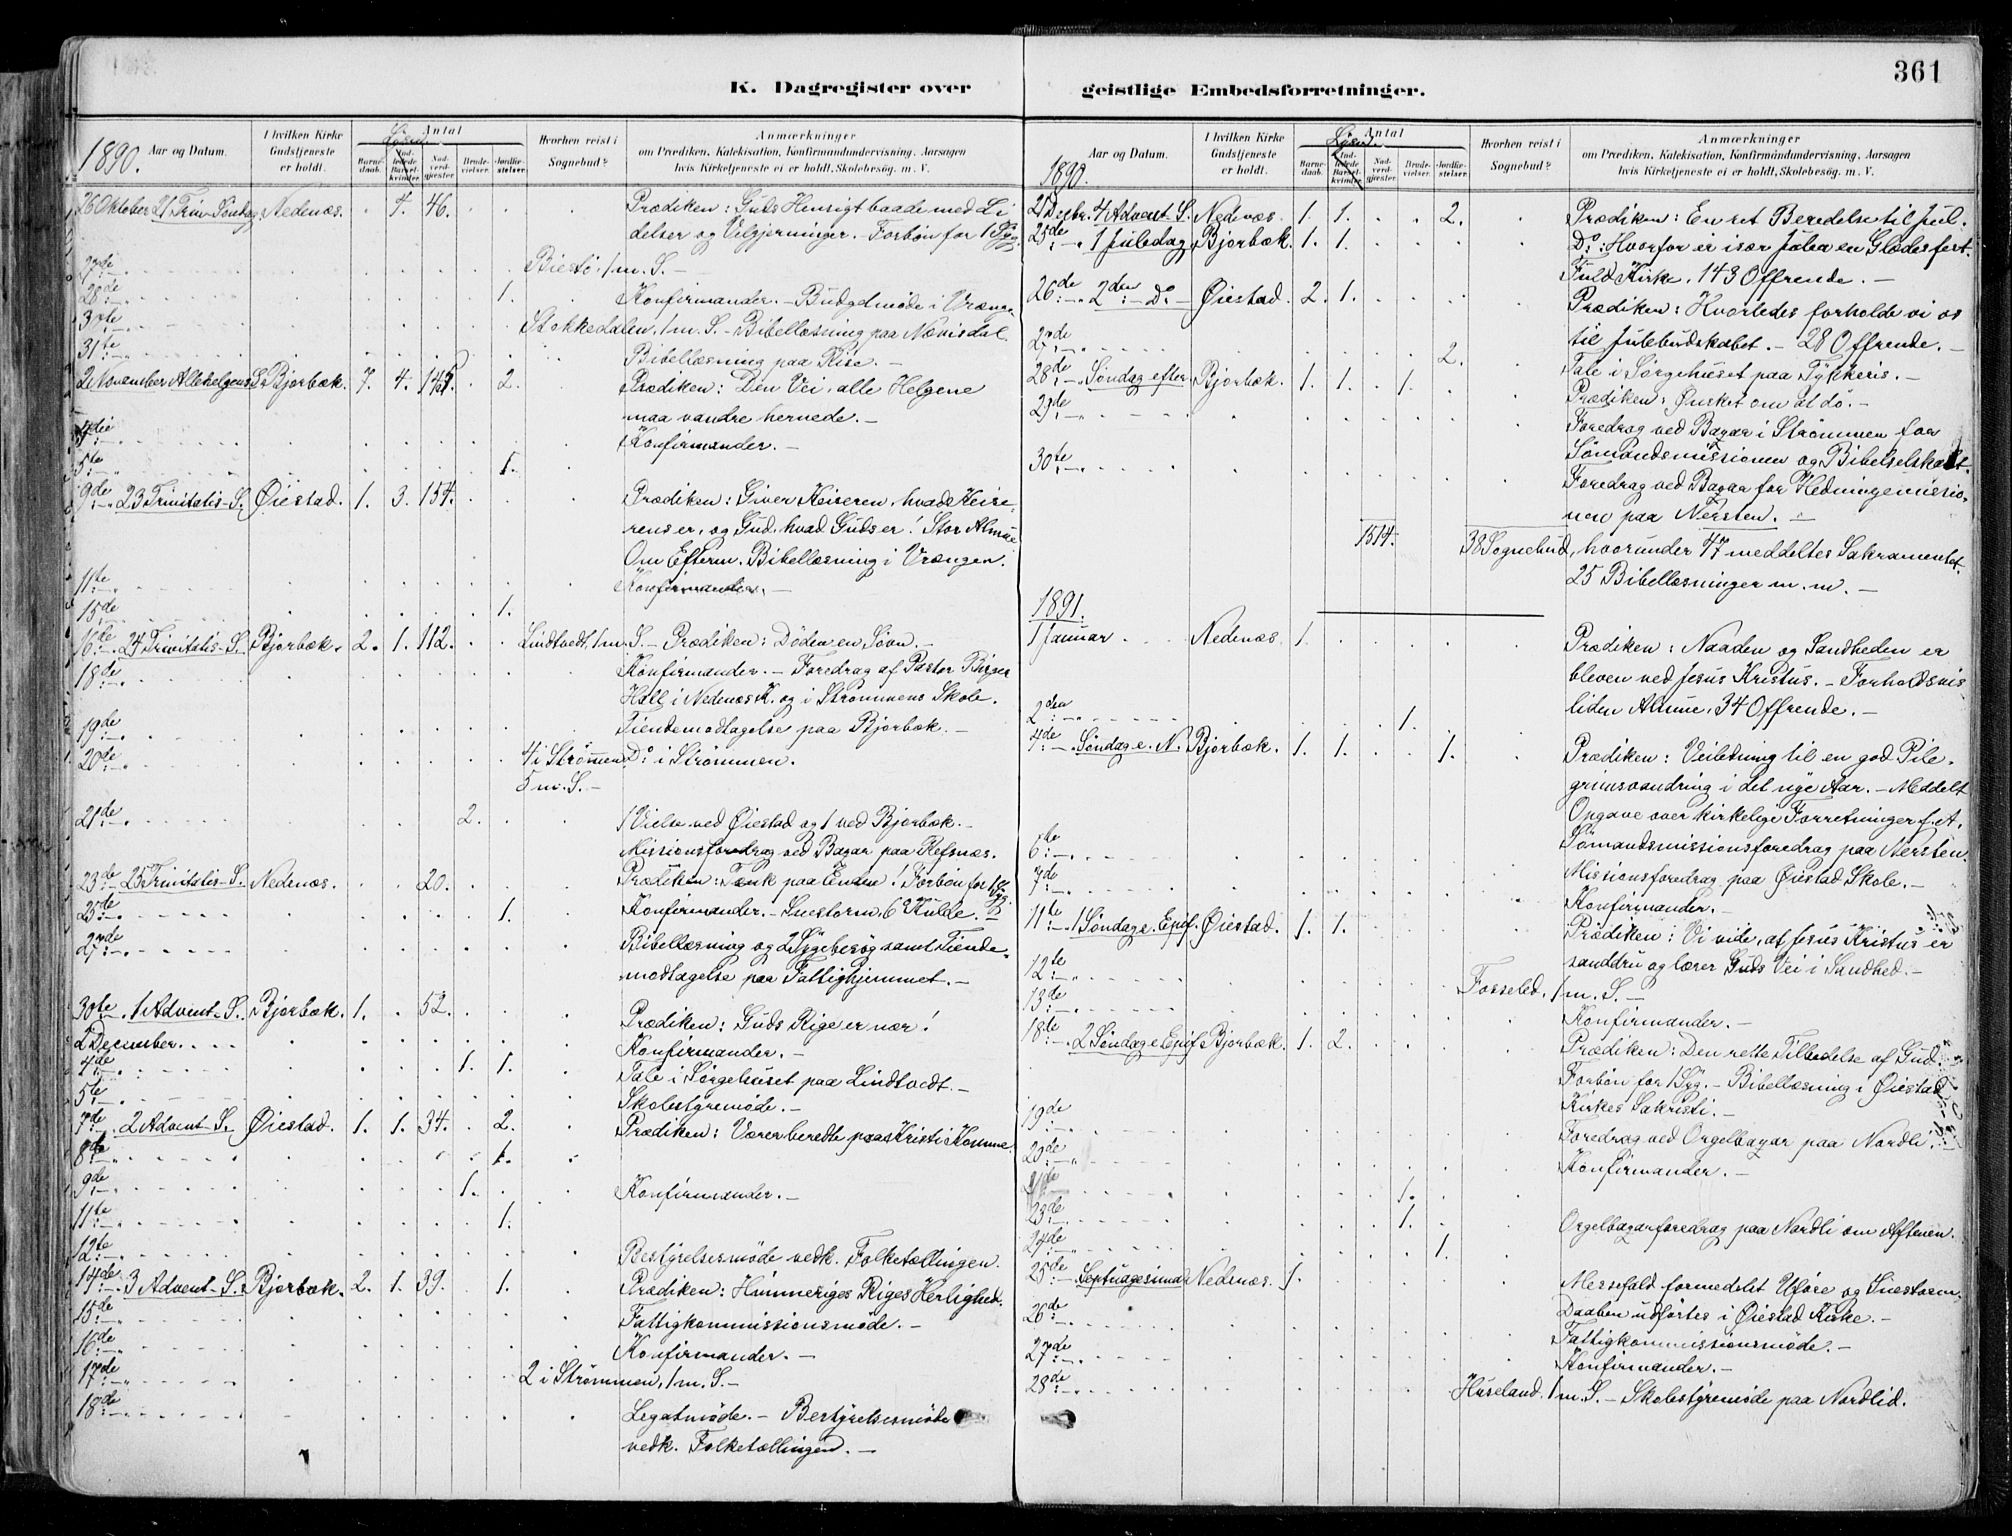 361
K. Dagregister over geistlige Embedsforretninger.
1890. Aar og Datum. I hvilken Kirke Gudstjeneste er holdt. Antal Barnedaab. Indledede Barselkvinder. Nadverdgjæster. Brudevielser. Jordfæstelser. Hvorhen reist i Sognebud? Anmærkninger om Prædiken, Katekisation, Konfirmandundervisning, Aarsagen hvis Kirketjeneste ei er holdt, Skolebesøg. m. V.
26 Oktober 21 Trin. Søndag Nedenæs. . 4. 46. . . . Prædiken: Guds Hensigt baade med Li
delser og Velgjerninger. – Forbøn for 1 Syg.
27de Biestø, 1 m. S. –
28de 1. Konfirmander. – Budgetmøde i Vrængen
30te Stokkedalen, 1 m. S. – Bibellæsning paa Nævisdal.
31te Bibellæsning paa Rise. –
2 November Allehelgens S. Bjorbæk. 7. 4. 145. . 2. . Prædiken: Den Vei, alle Helgene
maa vandre hernede. –
4de Konfirmander. –
5te 1.
9de 23 Trinitatis-S. Øiestad. 1. 3. 154. . . . Prædiken: Giver Keiseren, hvad Keise-
rens er, og Gud, hvad Guds er! Stor Almue
Om Efterm. Bibellæsning i Vrængen.
11te Konfirmander. –
15de 1.
16de 24 Trinitatis-S. Bjorbæk. 2. 1. 112. . . Lindtvedt, 1 m. S. – Prædiken: Døden en Søvn. –
18de Konfirmander. – Foredrag af Pastor Birger
Hall i Nedenæs K. og i Strømmens Skole.
19de Tiendemodtagelse paa Bjorbæk. –
20de 4 i Strømmen Do i Strømmen.
5 m. S. –
21de 2. 1 Vielse ved Øiestad og 1 ved Bjorbæk. –
Missionsforedrag ved Bazar paa Refsnæs.
23de 25 Trinitatis-S. Nedenæs. . . 20. . . . Prædiken: Tænk paa Enden! Forbøn for 1 Syg.
25de 1. Konfirmander. – Snestorm, 6° Kulde.
27de Bibellæsning og 2 Sygebesøg samt Tiende-
modtagelse paa Fattighjemmet. –
30te 1 Advent-S. Bjorbæk. 1. . 52. . . . Prædiken: Guds Rige er nær!
2 December Konfirmander. –
4de 1. 1. Tale i Sørgehuset paa Lindtvedt. –
5te Skolestyremøde. –
7de 2 Advent-S. Øiestad. 1. 1. 34. . 2. . Prædiken: Værer beredte paa Kristi Komme.
8de 1.
9de 1. Konfirmander. –
11te 1.
12te Bestyrelsesmøde vedk. Folketællingen.
14de 3 Advent-S. Bjorbæk. 2. 1. 39. . 1. . Prædiken: Himmeriges Riges Herlighed.
15de Fattigkommissionsmøde. –
16de Konfirmander. –
17de 2 i Strømmen, 1 m. S. –
18de Legatmøde. – Bestyrelsesmøde
vedk. Folketællingen. –
1890. Aar og Datum. I hvilken Kirke Gudstjeneste er holdt. Antal Barnedaab. Indledede Barselkvinder. Nadverdgjæster. Brudevielser. Jordfæstelser. Hvorhen reist i Sognebud? Anmærkninger om Prædiken, Katekisation, Konfirmandundervisning, Aarsagen hvis Kirketjeneste ei er holdt, Skolebesøg. m. V.
21 Decbr. 4 Advent S. Nedenæs. 1. 1. . . 2. . Prædiken: En ret Beredelse til Jul.
25de 1 Juledag Bjorbæk. 1. 1. Do: Hvorfor er især Julen en Glædesfest.
Fuld Kirke, 143 Offrende. –
26de 2den Do – Øiestad. 2. 1. Prædiken: Hvorledes forholde vi os
til Julebudskabet. – 28 Offrende. –
27de 2. Tale i Sørgehuset paa Tykkeris. –
28de Søndag efter Bjorbæk. 1. 1. . 1. . . Prædiken: Ønsket om at dø. –
29de Foredrag ved Bazar i Strømmen for
Sømandsmissionen og Bibelselskabet.
30te Foredrag ved Bazar for Hedningemissio-
nen paa Nersten. –
1514. 38 Sognebud, hvorunder 47 meddeltes Sakramentet.
25 Bibellæsninger m. m. –
1891.
1 Januar Nedenæs. 1. Prædiken: Naaden og Sandheden er
bleven ved Jesus Kristus. – Forholdsvis
liden Almue, 34 Offrende. –
2den 1.
4de Søndag e. N. Bjorbæk. 1. 1. . . 1. . Prædiken: Veiledning til en god Pile-
grimsvandring i det nye Aar. – Meddelt
Opgave over kirkelige Forretninger f. A.
6te Sømandsmissionsforedrag paa Nersten.
7de Missionsforedrag paa Øiestad Skole. –
Konfirmander. –
11te 1 Søndag e. Epif. Øiestad. 1. 1. Prædiken: Vi vide, at Jesus Kristus er
sanddru og lærer Guds Vei i Sandhed. –
12te Fosseled, 1 m. S. –
13de Konfirmander. –
18de 2 Søndag e Epif. Bjorbæk. 1. 2. Prædiken: Den rette Tilbedelse af Gud.
Forbøn for 1 Syg. – Bibellæsning i Øiestad
Kirkes Sakristi. –
19de Foredrag ved Orgelbazar paa Nordli. –
20de Konfirmander. –
21de 1.
23de 1. Orgelbazarforedrag paa Nordli om Aftenen.
24de 1.
25de Septuagesima Nedenæs. 1. Messefald formedelst Uføre og Snestorm.
Daaben udførtes i Øiestad Kirke. –
26de Fattigkommissionsmøde. –
27de Konfirmander. –
28de Huseland, 1 m. S. – Skolestyremøde paa Nordlid.